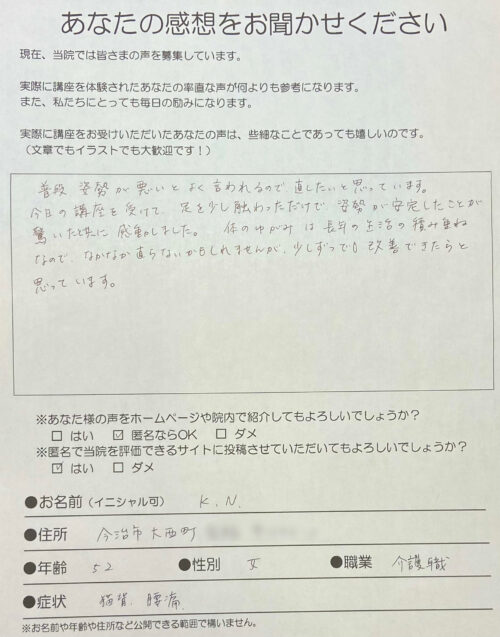 あなたの感想をお聞かせください
現在、当院では皆さまの声を募集しています。
実際に講座を体験されたあなたの率直な声が何よりも参考になります。
また、私たちにとっても毎日の励みになります。
実際に講座をお受けいただいたあなたの声は、些細なことであっても嬉しいのです。
（文章でもイラストでも大歓迎です！）
普段 姿勢が悪いとよく言われるので直したいと思っています。
今日の講座を受けて、足を少し触わっただけで、姿勢が安定したことが
驚いたと共に感動しました。 体のゆがみは長年の生活の積み重ね
なので、なかなか直らないかもしれませんが、少しずつでも改善できたらと
思っています。
※あなた様の声をホームページや院内で紹介してもよろしいでしょうか？
□ はい ☑ 匿名ならOK □ ダメ
※匿名で当院を評価できるサイトに投稿させていただいてもよろしいでしょうか？
☑ はい □ ダメ
●お名前（イニシャル可） K.N.
●住所 今治市大西町
●年齢 52 ●性別 女 ●職業 介護職
●症状 猫背、腰痛
※お名前や年齢や住所など公開できる範囲で構いません。